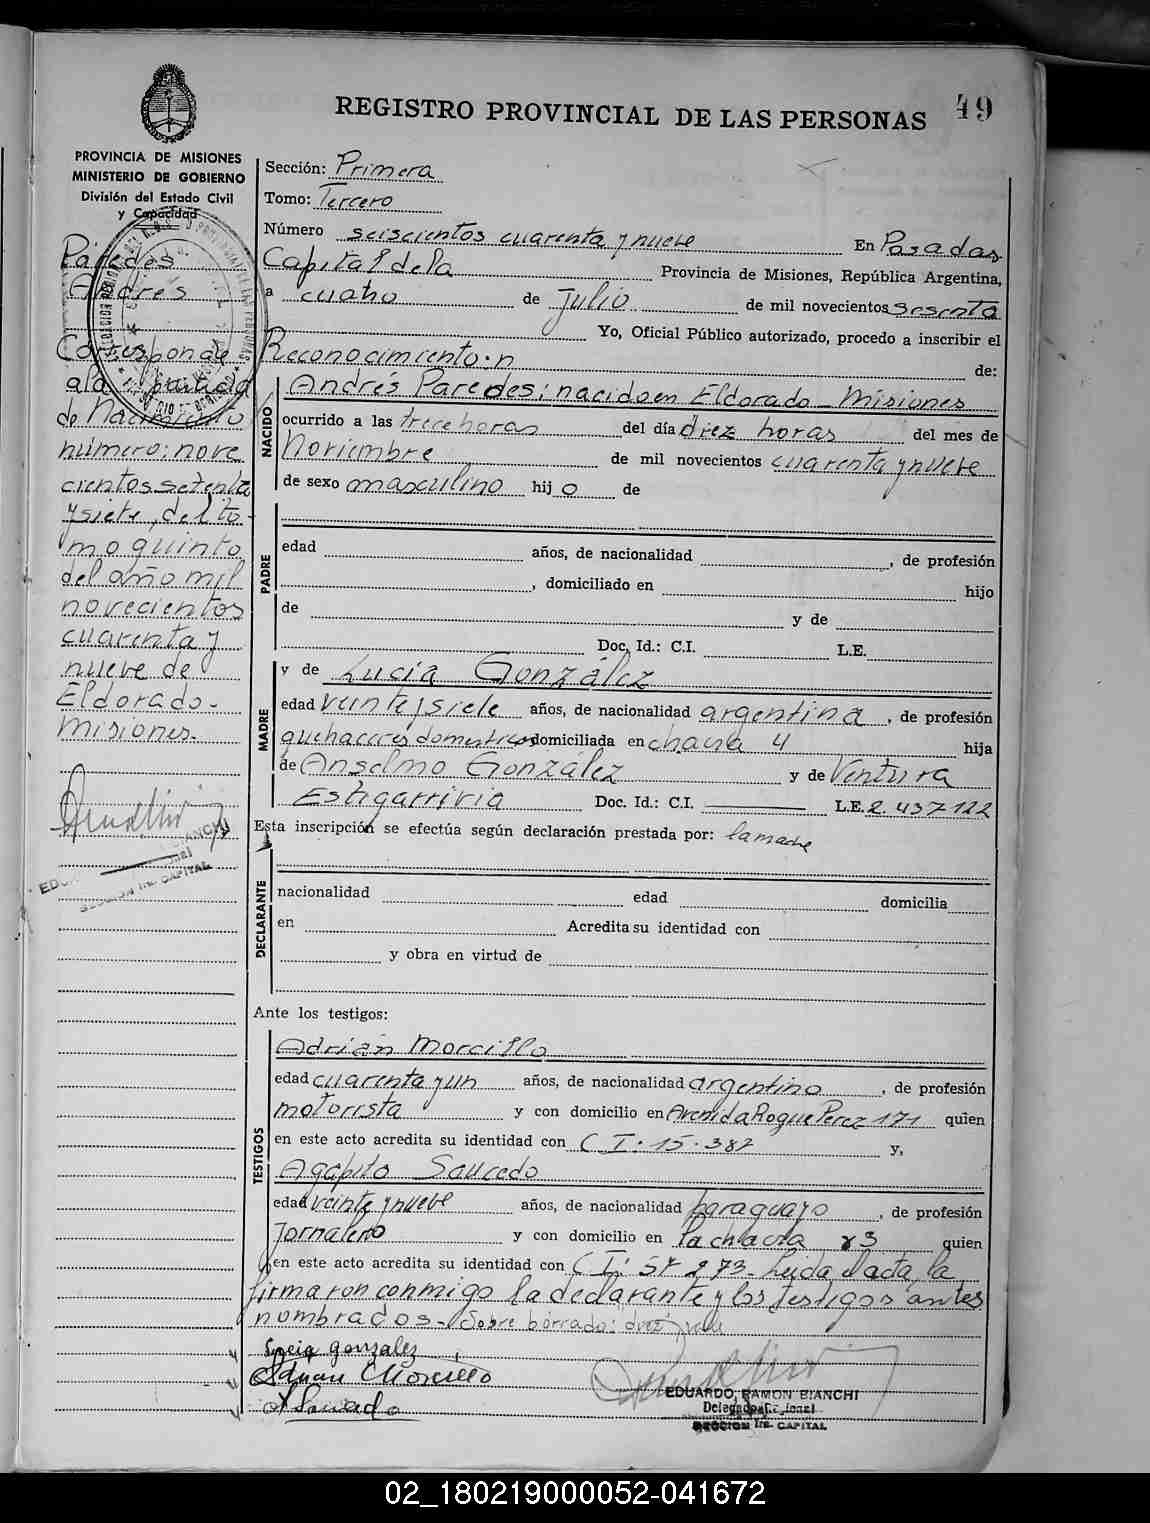 49
REGISTRO PROVINCIAL DE LAS PERSONAS
PROVINCIA DE MISIONES
MINISTERIO DE GOBIERNO
División del Estado Civil
y Capacidad
Paredes
Andrés
Corresponde
a la partida
de Nacimiento
número: nove
cientos setenta
y siete, del to
mo quinto
del año mil
novecientos
cuarenta y
nueve de
Eldorado-
Misiones.-
Sección: Primera
Tomo: Tercero
Número seiscientos cuarenta y nueve En Posadas
Capital de la Provincia de Misiones, República Argentina,
a cuatro de Julio de mil novecientos sesenta
Yo, Oficial Público autorizado, procedo a inscribir el
Reconocimiento: de:
NACIDO
Andrés Paredes; nacido en Eldorado - Misiones
ocurrido a las trece horas del día diez horas del mes de
Noviembre de mil novecientos cuarenta y nueve
de sexo masculino hij o de
PADRE
edad años, de nacionalidad , de profesión
, domiciliado en hijo
de y de
Doc. Id.: C.I. L.E.
MADRE
y de Lucía González
edad veinte y siete años, de nacionalidad argentina , de profesión
quehaceres domesticos domiciliada en chacra 4 hija
de Anselmo González y de Ventura
Estigarrivia Doc. Id.: C.I. L.E. 2.437122
Esta inscripción se efectúa según declaración prestada por: la madre
DECLARANTE
nacionalidad edad domicilia
en Acredita su identidad con
y obra en virtud de
Ante los testigos:
TESTIGOS
Adrián Morcillo
edad cuarenta y un años, de nacionalidad argentino , de profesión
motorista y con domicilio en Avenida Roque Perez 171 quien
en este acto acredita su identidad con C I: 15.382 y,
Agapito Saucedo
edad veinte y nueve años, de nacionalidad paraguayo , de profesión
Jornalero y con domicilio en la chacra quien
en este acto acredita su identidad con C I: 273 - Leida el acta, la
firmaron conmigo la declarante y los testigos antes
nombrados.- Sobre borrado: diez
Lucia gonzalez
Adrian Morcillo
EDUARDO RAMON BIANCHI
SECCION 1ra. CAPITAL
02_180219000052-041672